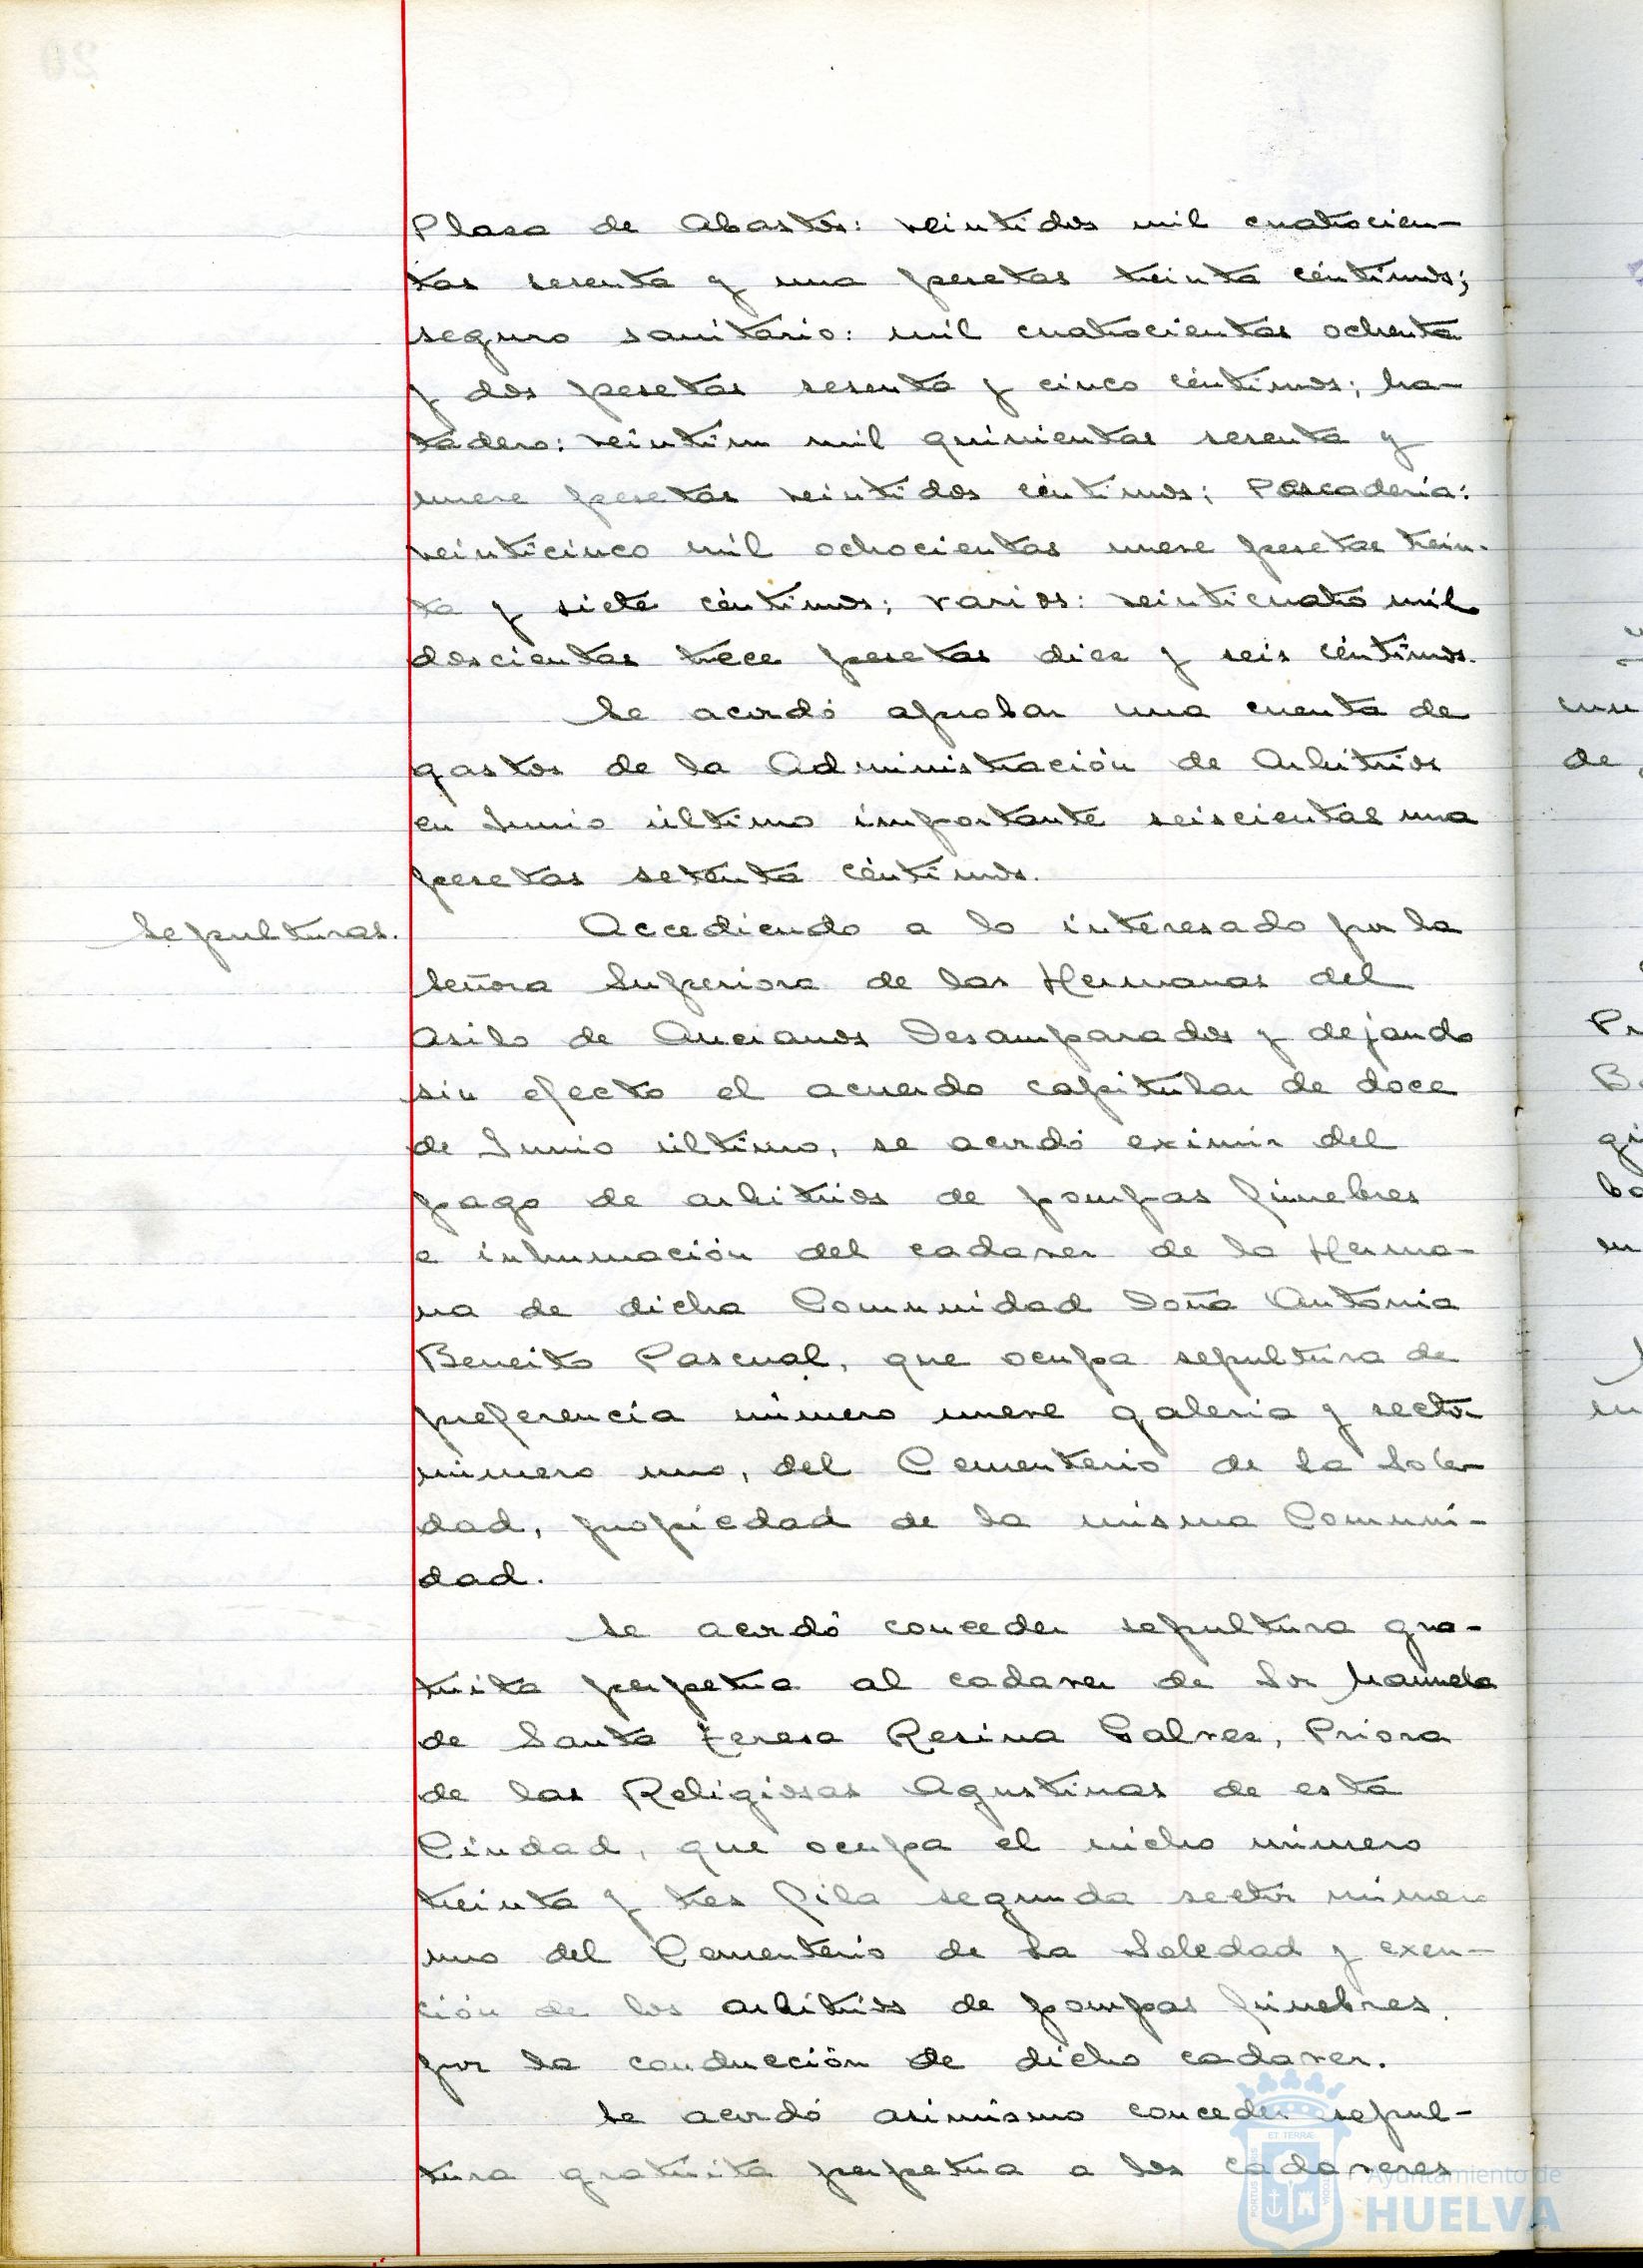 Plaza de Abastos: veintidos mil cuatrocien-
tas sesenta y una pesetas treinta céntimos;
seguro sanitario: mil cuatrocientas ochenta
y dos pesetas sesenta y cinco céntimos; Ma-
tadero: veintiun mil quinientas sesenta y
nueve pesetas veintidos céntimos; Pescaderia:
veinticinco mil ochocientas nueve pesetas trein-
ta y siete céntimos; varios: veinticuatro mil
doscientas trece pesetas diez y seis céntimos.
Se acordó aprobar una cuenta de
gastos de la Administración de Arbitrios
en Junio último importante seiscientas una
pesetas setenta céntimos.
Sepulturas.
Accediendo a lo interesado por la
Señora Superiora de las Hermanas del
Asilo de Ancianos Desamparados y dejando
sin efecto el acuerdo capitular de doce
de Junio último, se acordó eximir del
pago de arbitrios de pompas fúnebres
e inhumación del cadaver de la Herma-
na de dicha Comunidad Doña Antonia
Beneito Pascual, que ocupa sepultura de
preferencia número nueve galeria y sector
número uno, del Cementerio de la Sole-
dad, propiedad de la misma Comuni-
dad.
Se acordó conceder sepultura gra-
tuita perpetua al cadaver de Sor Manuela
de Santa Teresa Resina Galvez, Priora
de las Religiosas Agustinas de esta
Ciudad, que ocupa el nicho número
treinta y tres fila segunda sector número
uno del Cementerio de la Soledad y exen-
ción de los arbitrios de pompas fúnebres
por la conducción de dicho cadaver.
Se acordó asimismo conceder sepul-
tura gratuita perpetua a los cadaveres
Ayuntamiento de
HUELVA